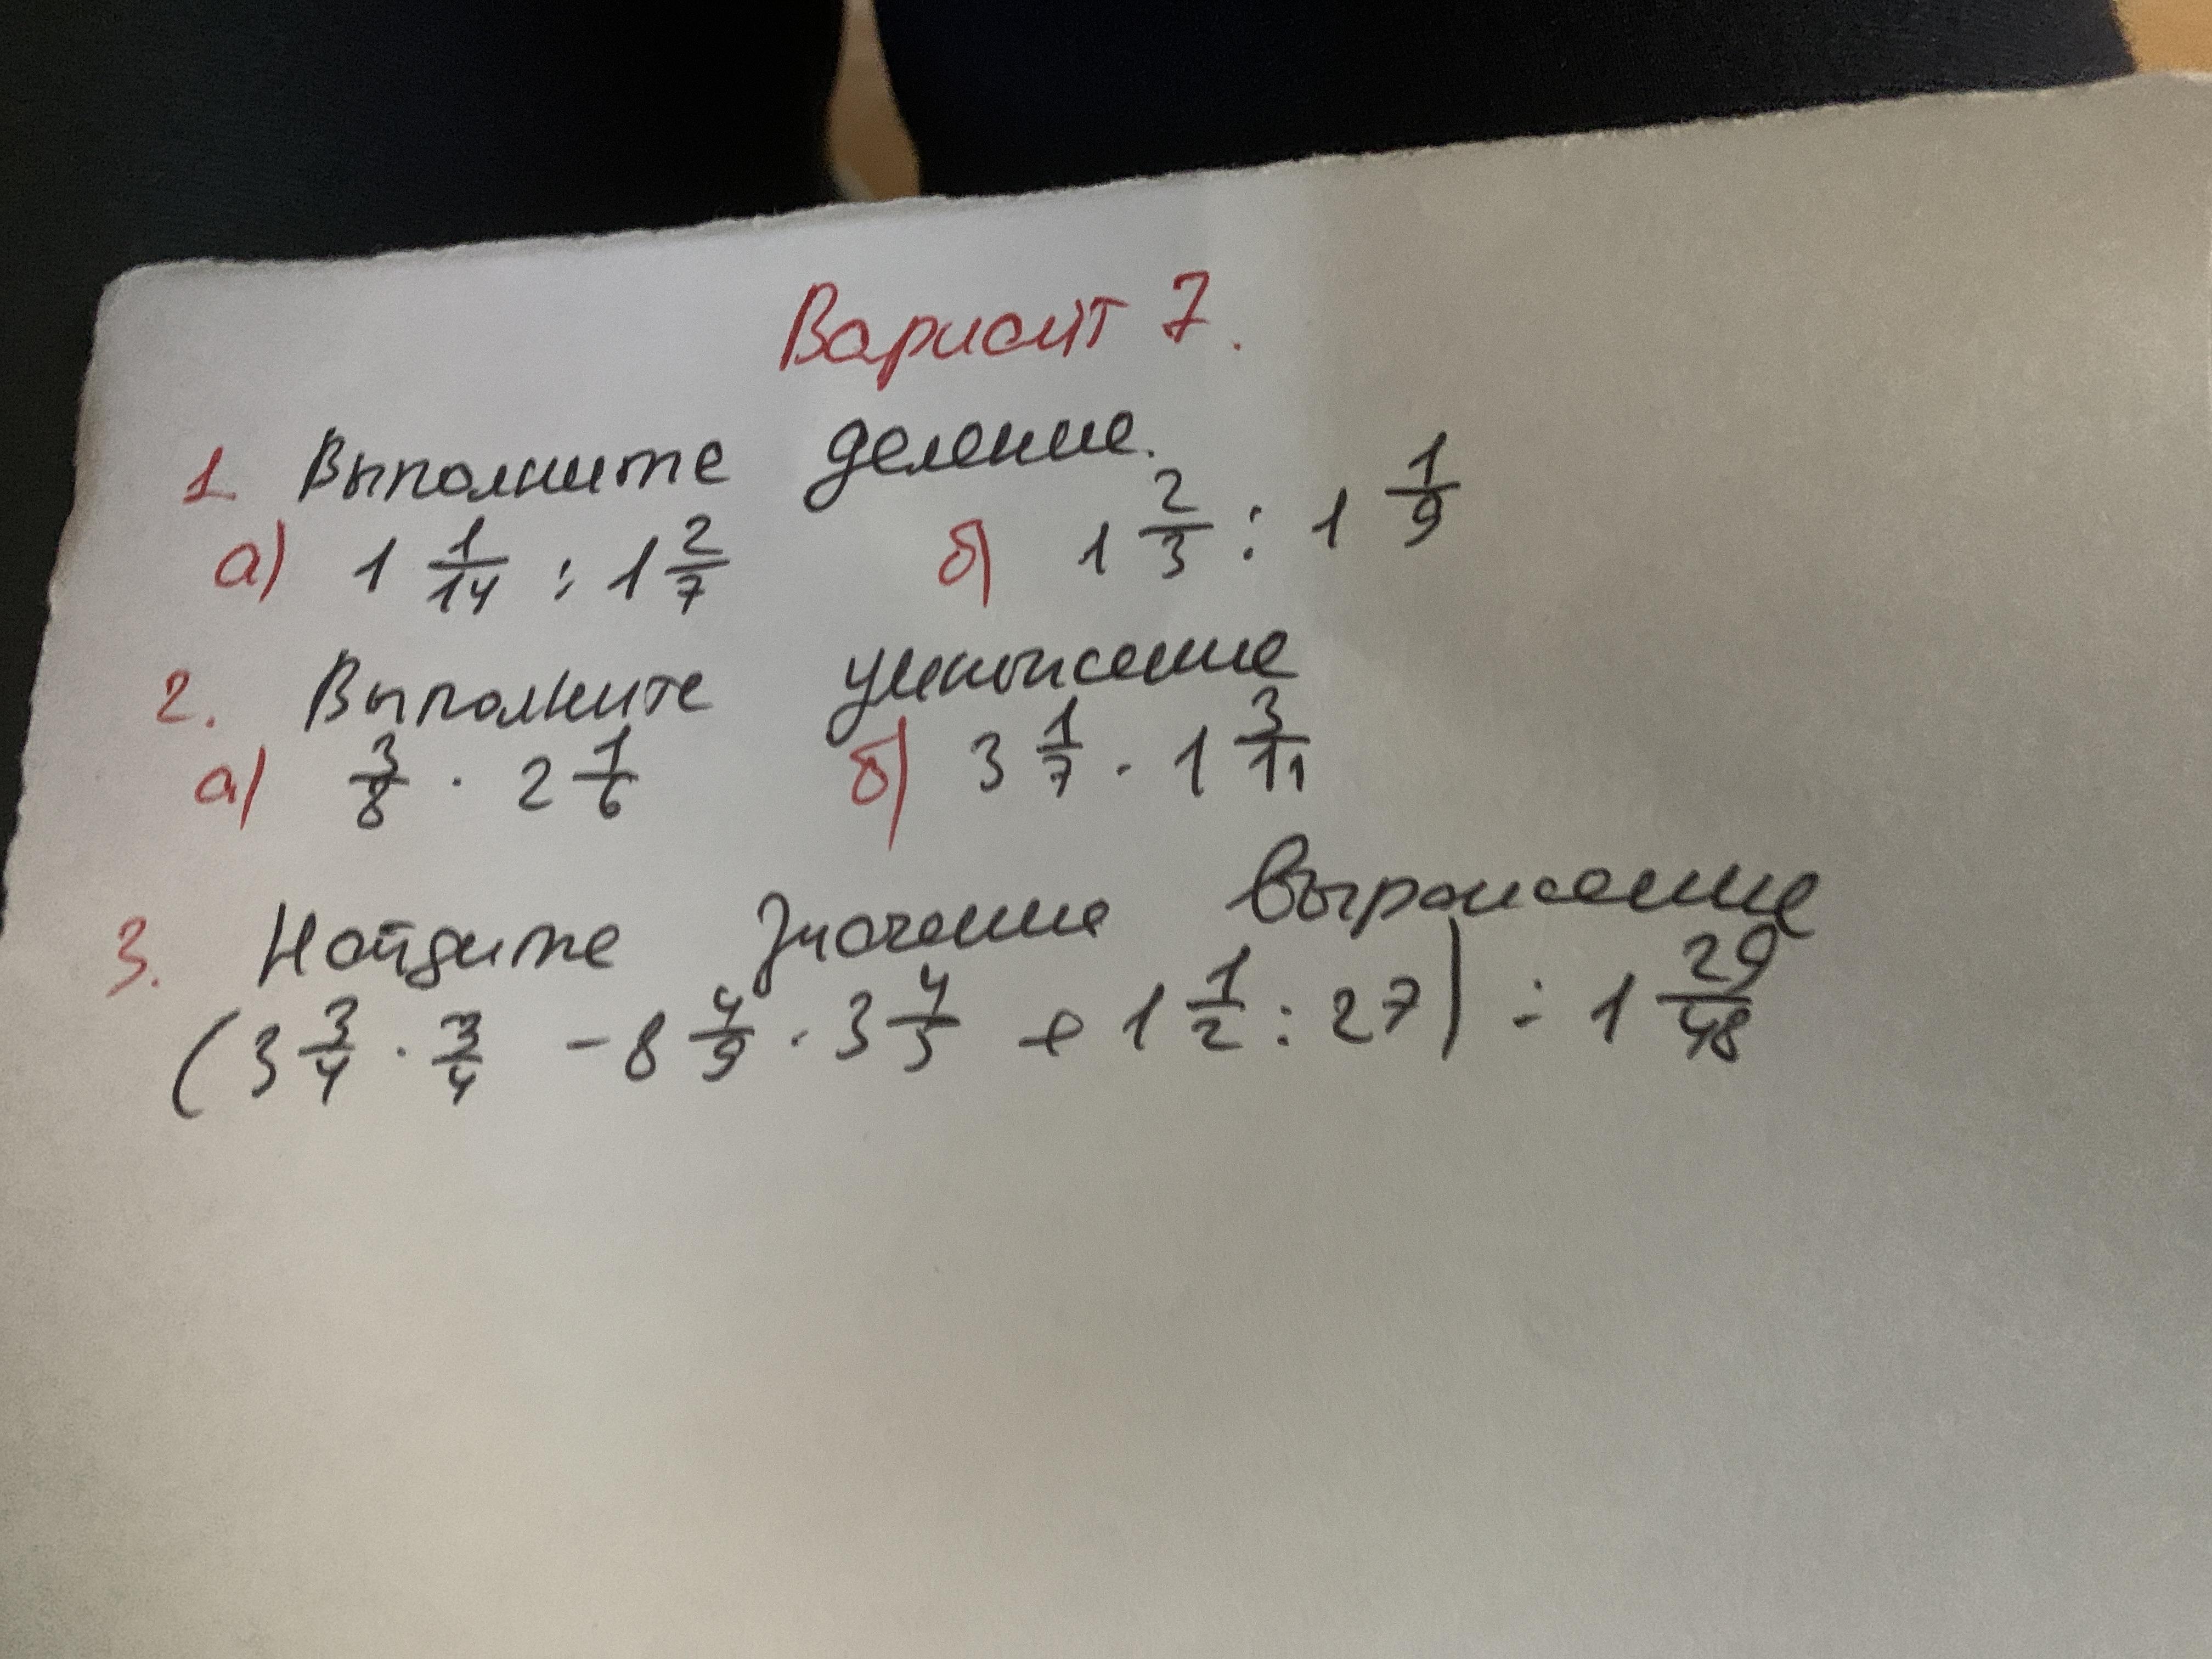 Вариант 7.
1. Выполните деление.
а) 1 1/14 : 1 2/7 б) 1 2/3 : 1 1/9
2. Выполните умножение
а) 3/8 · 2 1/6 б) 3 1/7 · 1 3/11
3. Найдите значение выражение
(3 3/4 · 3/4 - 8 4/9 · 3 4/5 + 1 1/2 : 27) : 1 29/48